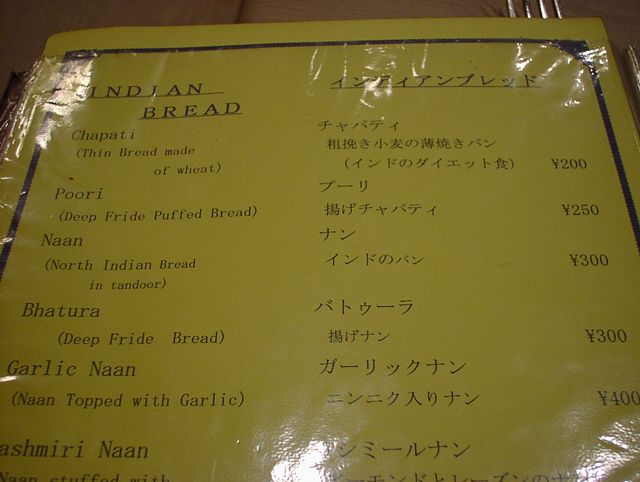 INDIAN BREAD
インディアンブレッド
Chapati
チャパティ
(Thin Bread made
of wheat)
粗挽き小麦の薄焼きパン
(インドのダイエット食) ¥200
Poori
プーリ
(Deep Fride Puffed Bread)
揚げチャパティ ¥250
Naan
ナン
(North Indian Bread
in tandoor)
インドのパン ¥300
Bhatura
バトゥーラ
(Deep Fride Bread)
揚げナン ¥300
Garlic Naan
ガーリックナン
(Naan Topped with Garlic)
ニンニク入りナン ¥400
ashmiri Naan
シミールナン
Naan stuffed with
ーモンドとレーズンのナ